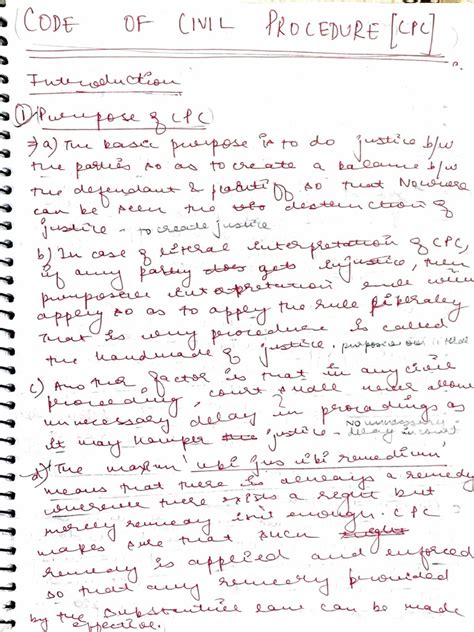 CODE OF CIVIL PROCEDURE [CPC]
Introduction
① Purpose of CPC
⇒ a) The basic purpose is to do justice b/w
the parties so as to create a balance b/w
the defendant & plaintiff so that Nowhere
can be seen the destruction of
justice - to create justice
b) In case of literal interpretation of CPC,
if any party does gets injustice, then
purposive interpretation rule will
apply so as to apply the rule liberally
that is why procedure is called
the handmade of justice.
c) Another factor is that in any civil
proceeding, court shall never allow
unnecessary delay in procedings as
it may hamper the justice - No unnecessary
delay in court
d) The maxim 'ubi jus ubi remedium'
means that there is always a remedy
wherene there exists a regit but
merely remeday isn't enough. CPC
makes sure that such
remeday is applied and enforced
so that any remeday provided
by the substantive law can be made
effective.